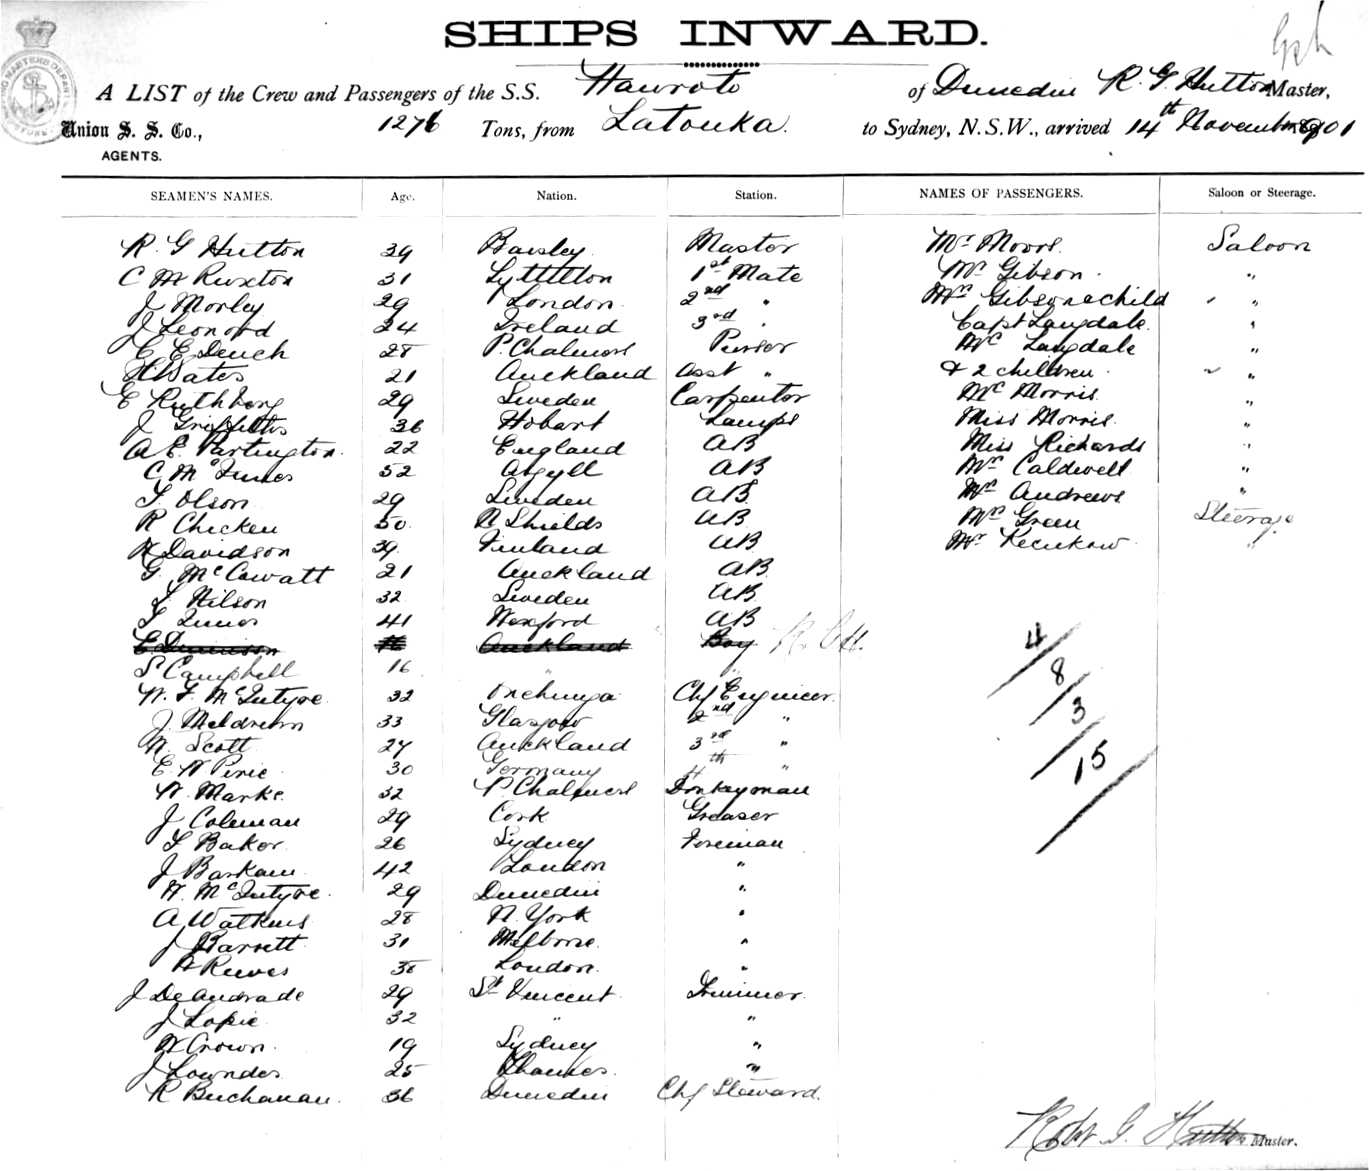 SHIPS INWARD.
A LIST of the Crew and Passengers of the S.S. Hauroto of Dunedin R. G. Hutton Master,
Union S. S. Co., 1276 Tons, from Latouka. to Sydney, N.S.W., arrived 14th November 1901
AGENTS.
SEAMEN'S NAMES. Age. Nation. Station. NAMES OF PASSENGERS. Saloon or Steerage.
R. G Hutton 39 Master Mr Moors. Saloon
C M Ruxton 31 Lyttelton 1st Mate Mr Gibson. "
J Morley 29 London 2nd " Mrs Gibson & child "
J Leonard 24 Ireland 3rd " Capt Langdale. "
C E Dench 28 P. Chalmers Purser Mrs Langdale "
H Bates 21 Auckland Asst " & 2 children. "
E Ruthberg 29 Sweden Carpenter Mrs Morris. "
J Griffiths 36 Hobart Lamps Miss Morris. "
A E. Partington. 22 England AB Miss Richards "
C McInnes 52 Argyll AB Mr Caldwell "
Olson 29 Sweden AB Mr Andrews "
R Chicken 50 N Shields AB Mr Green Steerage
Davidson 39 Finland AB Mr "
G. 21 Auckland AB
Nilson 32 Sweden AB
41 Wexford AB
Auckland Boy
S Campbell 16 " "
W. F. McIntyre 32 Onehunga Chf Engineer
J. Meldrum 33 Glasgow 2nd "
W. Scott 27 Auckland 3rd "
E W Pirie 30 Germany 4th "
W. Marks. 32 P. Chalmers Donkeyman
J Coleman 29 Cork Greaser
Baker 26 Sydney Fireman
J Barkam 42 London "
W. McIntyre. 29 Dunedin "
A Watkins 28 N. York "
J Barrett 31 Melbrne. "
Reeves 38 London. "
J DeAndrade 29 St Vincent Trimmer.
J Lopie 32 " "
W Crown. 19 Sydney "
J Lowndes 25 Thames. "
R Buchanan. 36 Dunedin Chf Steward.
4
8
3
15
Robt G. Hutton Master.